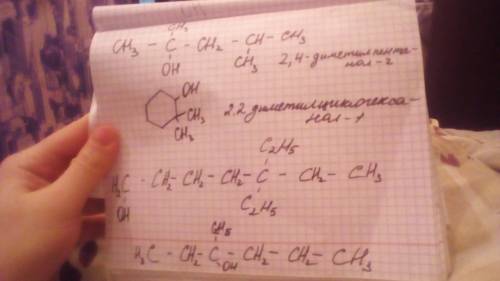 CH₃
CH₃ - C - CH₂ - CH - CH₃
OH CH₃ 2,4-диметилпента-
нол-2
OH
CH₃
CH₃
2,2-диметилциклогекса-
нол-1
C₂H₅
H₃C - CH₂ - CH₂ - CH₂ - C - CH₂ - CH₃
OH
C₂H₅
H₃C - CH₂ - C - CH₂ - CH₂ - CH₃
OH